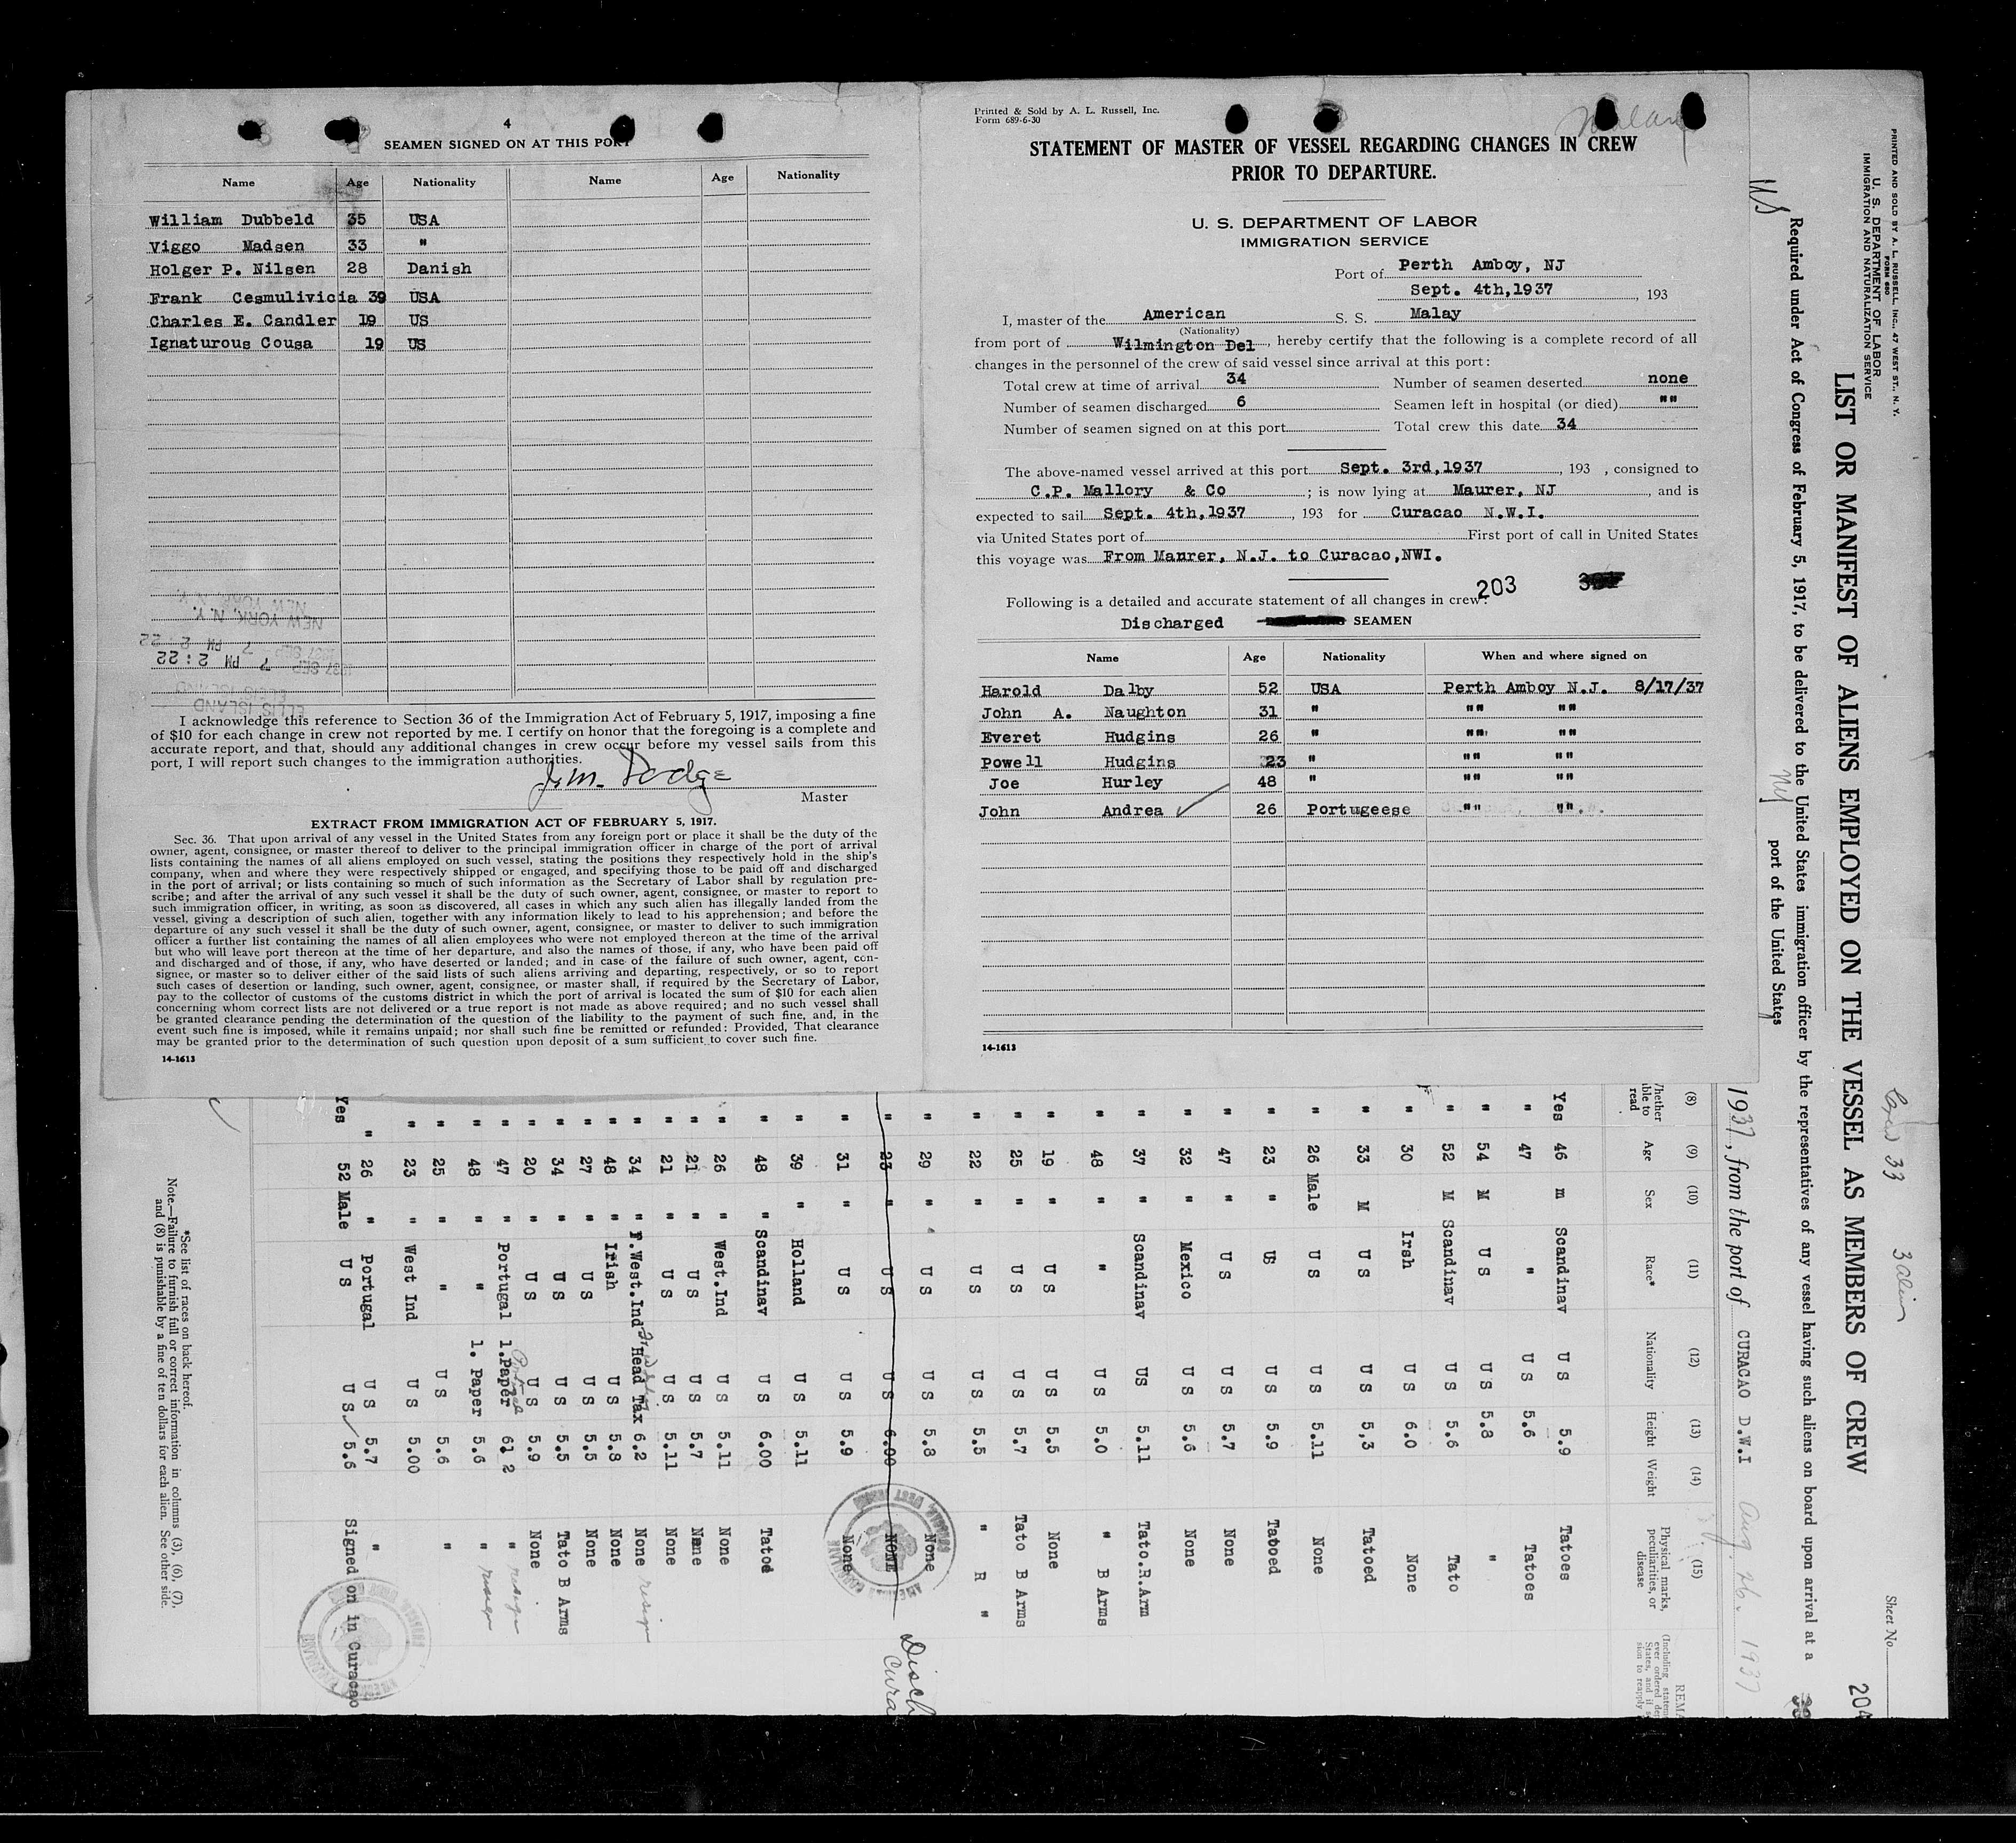 4
SEAMEN SIGNED ON AT THIS PORT
Name Age Nationality Name Age Nationality
William Dubbeld 35 USA
Viggo Madsen 33 "
Holger P. Nilsen 28 Danish
Frank Cesmulivicia 39 USA
Charles E. Candler 19 US
Ignaturous Cousa 19 US
NEW YORK, N.Y.
7 PM 2:22
ELLIS ISLAND
I acknowledge this reference to Section 36 of the Immigration Act of February 5, 1917, imposing a fine
of $10 for each change in crew not reported by me. I certify on honor that the foregoing is a complete and
accurate report, and that, should any additional changes in crew occur before my vessel sails from this
port, I will report such changes to the immigration authorities.
Dodge
Master
EXTRACT FROM IMMIGRATION ACT OF FEBRUARY 5, 1917.
Sec. 36. That upon arrival of any vessel in the United States from any foreign port or place it shall be the duty of the
owner, agent, consignee, or master thereof to deliver to the principal immigration officer in charge of the port of arrival
lists containing the names of all aliens employed on such vessel, stating the positions they respectively hold in the ship's
company, when and where they were respectively shipped or engaged, and specifying those to be paid off and discharged
in the port of arrival; or lists containing so much of such information as the Secretary of Labor shall by regulation pre-
scribe; and after the arrival of any such vessel it shall be the duty of such owner, agent, consignee, or master to report to
such immigration officer, in writing, as soon as discovered, all cases in which any such alien has illegally landed from the
vessel, giving a description of such alien, together with any information likely to lead to his apprehension; and before the
departure of any such vessel it shall be the duty of such owner, agent, consignee, or master to deliver to such immigration
officer a further list containing the names of all alien employees who were not employed thereon at the time of the arrival
but who will leave port thereon at the time of her departure, and also the names of those, if any, who have been paid off
and discharged and of those, if any, who have deserted or landed; and in case of the failure of such owner, agent, con-
signee, or master so to deliver either of the said lists of such aliens arriving and departing, respectively, or so to report
such cases of desertion or landing, such owner, agent, consignee, or master shall, if required by the Secretary of Labor,
pay to the collector of customs of the customs district in which the port of arrival is located the sum of $10 for each alien
concerning whom correct lists are not delivered or a true report is not made as above required; and no such vessel shall
be granted clearance pending the determination of the question of the liability to the payment of such fine, and, in the
event such fine is imposed, while it remains unpaid; nor shall such fine be remitted or refunded: Provided, That clearance
may be granted prior to the determination of such question upon deposit of a sum sufficient to cover such fine.
14-1613
Printed & Sold by A. L. Russell, Inc.
Form 689-6-30
STATEMENT OF MASTER OF VESSEL REGARDING CHANGES IN CREW
PRIOR TO DEPARTURE.
U. S. DEPARTMENT OF LABOR
IMMIGRATION SERVICE
Port of Perth Amboy, NJ
Sept. 4th,1937, 193
I, master of the American S. S. Malay
(Nationality)
from port of Wilmington Del, hereby certify that the following is a complete record of all
changes in the personnel of the crew of said vessel since arrival at this port:
Total crew at time of arrival 34 Number of seamen deserted none
Number of seamen discharged 6 Seamen left in hospital (or died) ""
Number of seamen signed on at this port Total crew this date 34
The above-named vessel arrived at this port Sept. 3rd,1937, 193 , consigned to
C.P. Mallory & Co ; is now lying at Maurer, NJ, and is
expected to sail Sept. 4th,1937, 193 for Curacao N.W.I.
via United States port of First port of call in United States
this voyage was From Maurer, N.J. to Curacao,NWI.
203
Following is a detailed and accurate statement of all changes in crew:
Discharged SEAMEN
Name Age Nationality When and where signed on
Harold Dalby 52 USA Perth Amboy N.J. 8/17/37
John A. Naughton 31 " "" ""
Everet Hudgins 26 " "" ""
Powell Hudgins 23 " "" ""
Joe Hurley 48 " "" ""
John Andrea ✓ 26 Portugeese "" ""
14-1613
PRINTED AND SOLD BY A. L. RUSSELL, INC., 47 WEST ST., N. Y.
FORM 680
U. S. DEPARTMENT OF LABOR
IMMIGRATION AND NATURALIZATION SERVICE
Sheet No.
204
Crew 33 3 alien
LIST OR MANIFEST OF ALIENS EMPLOYED ON THE VESSEL AS MEMBERS OF CREW
US
Required under Act of Congress of February 5, 1917, to be delivered to the United States immigration officer by the representatives of any vessel having such aliens on board upon arrival at a
port of the United States
NY
1937, from the port of CURACAO D.W.I Aug. 26. 1937
(8) (9) (10) (11) (12) (13) (14) (15)
Whether able to read Age Sex Race* Nationality Height Weight Physical marks, peculiarities, or disease
Yes 46 m Scandinav U S 5.9 Tatoes
" 47 " U S 5.6 Tatoes
" 54 M U S U S 5.8 "
" 52 M Scandinav U S 5.6 Tato
" 30 Irsh U S 6.0 None
" 33 M U S U S 5,3 Tatoed
" 26 Male U S U S 5.11 None
" 23 " US U S 5.9 Tatoed
" 47 " U S U S 5.7 None
" 32 " Mexico U S 5.6 None
" 37 " Scandinav US 5.11 Tato.R.Arm
" 48 " " U S 5.0 " B Arms
" 19 " U S U S 5.5 None
" 25 " U S U S 5.7 Tato B Arms
" 22 " U S U S 5.5 " R "
" 29 " U S U S 5.8 None
" 23 " U S U S 6.00 NONE Disch Cura
" 31 " U S U S 5.9 None
" 39 " Holland U S 5.11
" 48 " Scandinav U S 6.00 Tatod
" 26 " West.Ind U S 5.11 None
" 21 " U S U S 5.7 None
" 21 " U S U S 5.11 None
" 34 " F.West.Ind Head Tax 6.2 None
" 48 " Irish U S 5.8 None
" 27 " U S U S 5.5 None
" 34 " U S U S 5.5 Tato B Arms
" 20 " U S U S 5.9 None
" 47 " Portugal 1.Paper 6 2 "
" 48 " " 1. Paper 5.6 "
" 25 " " U S 5.6 "
" 23 " West Ind U S 5.00
" 26 " Portugal U S 5.7 "
Yes 52 Male U S U S ✓ 5.6 Signed on in Curacao
*See list of races on back hereof.
Note.—Failure to furnish full or correct information in columns (3), (6), (7),
and (8) is punishable by a fine of ten dollars for each alien. See other side.